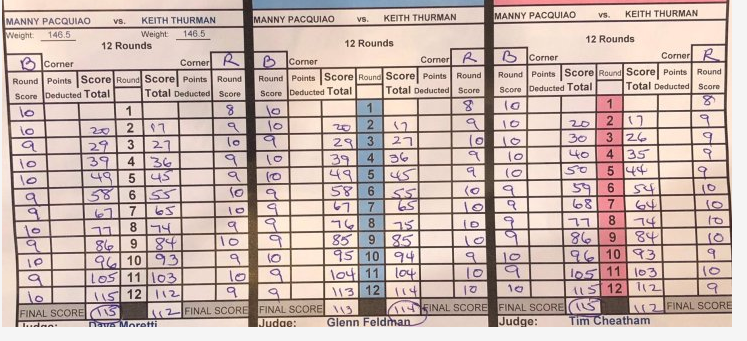 MANNY PACQUIAO vs. KEITH THURMAN
Weight: 146.5 Weight: 146.5
12 Rounds
B Corner Corner R
Round Score Points Deducted Score Total Round Score Total Points Deducted Round Score
10 1 8
10 20 2 17 9
9 29 3 27 10
10 39 4 36 9
10 49 5 45 9
9 58 6 55 10
9 67 7 65 10
10 77 8 74 9
9 86 9 84 10
10 96 10 93 9
9 105 11 103 10
10 115 12 112 9
FINAL SCORE 115 112 FINAL SCORE
Judge: Dave Moretti
MANNY PACQUIAO vs. KEITH THURMAN
12 Rounds
B Corner Corner R
Round Score Points Deducted Score Total Round Score Total Points Deducted Round Score
10 1 8
10 20 2 17 9
9 29 3 27 10
10 39 4 36 9
10 49 5 45 9
9 58 6 55 10
9 67 7 65 10
9 76 8 75 10
9 85 9 85 10
10 95 10 94 9
9 104 11 104 10
9 113 12 114 10
FINAL SCORE 113 114 FINAL SCORE
Judge: Glenn Feldman
MANNY PACQUIAO vs. KEITH THURMAN
12 Rounds
B Corner Corner R
Round Score Points Deducted Score Total Round Score Total Points Deducted Round Score
10 1 8
10 20 2 17 9
10 30 3 26 9
10 40 4 35 9
10 50 5 44 9
9 59 6 54 10
9 68 7 64 10
9 77 8 74 10
9 86 9 84 10
10 96 10 93 9
9 105 11 103 10
10 115 12 112 9
FINAL SCORE 115 112 FINAL SCORE
Judge: Tim Cheatham